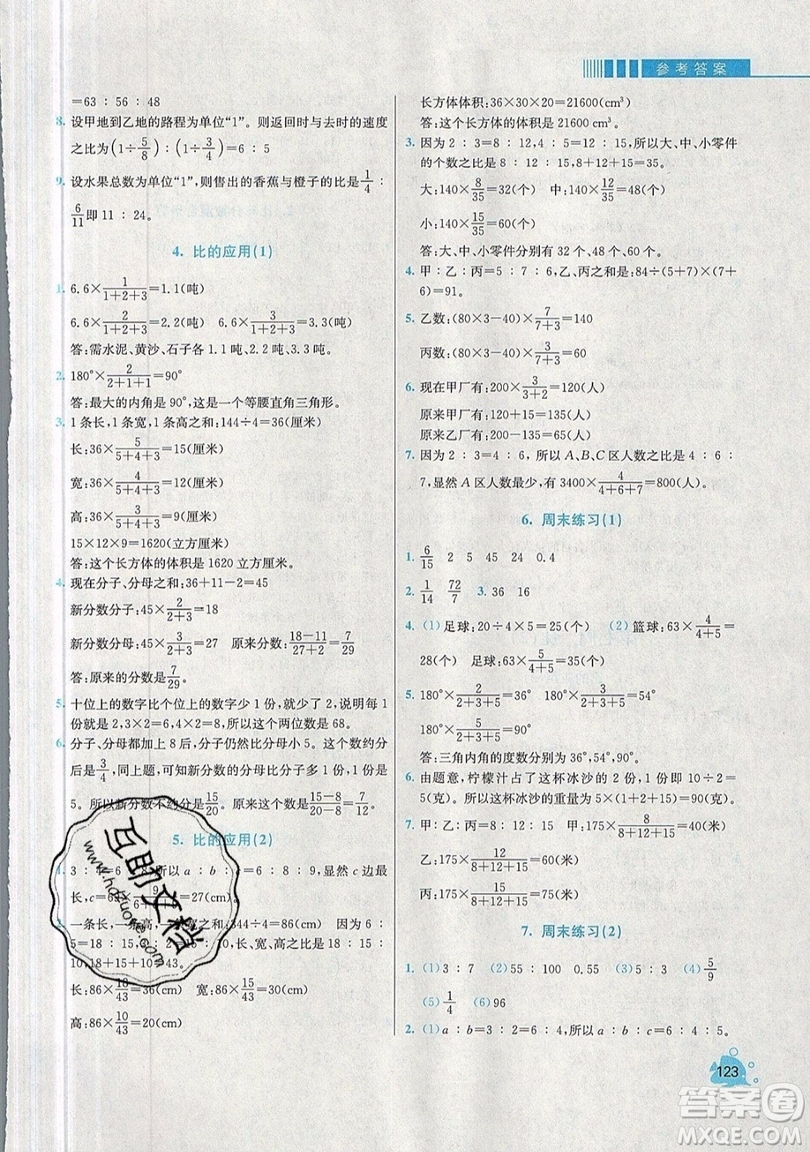 参考答案
=63 : 56 : 48
8. 设甲地到乙地的路程为单位“1”。则返回时与去时的速度
之比为(1÷5/8) : (1÷3/4)=6 : 5
9. 设水果总数为单位“1”,则售出的香蕉与橙子的比是1/4 :
6/11即 11 : 24。
4. 比的应用(1)
1. 6.6×1/(1+2+3)=1.1(吨)
6.6×2/(1+2+3)=2.2(吨) 6.6×3/(1+2+3)=3.3(吨)
答:需水泥、黄沙、石子各 1.1 吨、2.2 吨、3.3 吨。
2. 180°×2/(2+1+1)=90°
答:最大的内角是 90°,这是一个等腰直角三角形。
3. 1 条长,1 条宽,1 条高之和:144÷4=36(厘米)
长:36×5/(5+4+3)=15(厘米)
宽:36×4/(5+4+3)=12(厘米)
高:36×3/(5+4+3)=9(厘米)
15×12×9=1620(立方厘米)
答:这个长方体的体积是 1620 立方厘米。
4. 现在分子、分母之和:36+11-2=45
新分数分子:45×2/(2+3)=18
新分数分母:45×3/(2+3)=27 原来分数:(18-11)/(27+2)=7/29
答:原来的分数是7/29。
5. 十位上的数字比个位上的数字少 1 份,就是少 2,说明每 1
份就是 2,3×2=6,4×2=8,所以这个两位数是 68。
6. 分子、分母都加上 8 后,分子仍然比分母小 5。这个数约分
后是3/4,同上题,可知新分数的分母比分子多 1 份,每份是
5。所以新分数不约分是15/20。原来分数是(15-8)/(20-8)=7/12
5. 比的应用(2)
1. 3 : 4=6 : 8,所以 a : b : c=6 : 8 : 9,显然 c 边最
长,c=69×9/(6+8+9)=27(cm)
一条长,一条高,一条宽之和:344÷4=86(cm) 因为 6 :
5=18 : 15,所以长、宽、高之比是 18 : 15 :
10,18+15+10=43
长:86×18/43=36(cm) 宽:86×15/43=30(cm)
高:86×10/43=20(cm)
长方体体积:36×30×20=21600(cm³)
答:这个长方体的体积是 21600 cm³。
3. 因为 2 : 3=8 : 12,4 : 5=12 : 15,所以大、中、小零件
的个数之比是 8 : 12 : 15,8+12+15=35。
大:140×8/35=32(个) 中:140×12/35=48(个)
小:140×15/35=60(个)
答:大、中、小零件分别有 32 个、48 个、60 个。
4. 甲 : 乙 : 丙=5 : 7 : 6,甲、乙、丙之和是:84÷(5+7)×(5+7+
6)÷... =91。
5. 乙数:(80×3-40)×7/(7+3)=140
丙数:(80×3-40)×3/(7+3)=60
6. 现在甲厂有:200×3/(3+2)=120(人)
原来甲厂有:120+15=135(人)
原来乙厂有:200-135=65(人)
7. 因为 2 : 3=4 : 6, 所以 A、B、C 区人数之比是 4 : 6 :
7,显然 A 区人数最少,有 3400×4/(4+6+7)=800(人)。
6. 周末练习(1)
1. 6/15 2 5 45 24 0.4
2. 1/14 72/7 3. 36 16
4. (1) 足球:20÷4×5=25(个) (2) 篮球:63×4/(4+5)=
28(个) 足球:63×5/(4+5)=35(个)
5. 180°×2/(2+3+5)=36° 180°×3/(2+3+5)=54°
180°×5/(2+3+5)=90°
答:三角内角的度数分别为 36°,54°,90°。
6. 由题意,柠檬汁占了这杯冰沙的 2 份,1 份即 10÷2=
5(克)。所以这杯冰沙的重量为 5×(2+7+9)=90(克)
7. 甲 : 乙 : 丙=8 : 12 : 15 甲:175×8/(8+12+15)=40(米)
乙:175×12/(8+12+15)=60(米)
丙:175×15/(8+12+15)=75(米)
7. 周末练习(2)
1. (1) 3 : 7 (2) 55 : 100 0.55 (3) 15 : 2 (4) 5/9
(5) 1/4 (6) 96
2. (1)a : b=3 : 2=6 : 4,所以 a : b : c=6 : 4 : 5。
123
互助文档
www.hdzuoye.com
答案圈
MXQE.COM